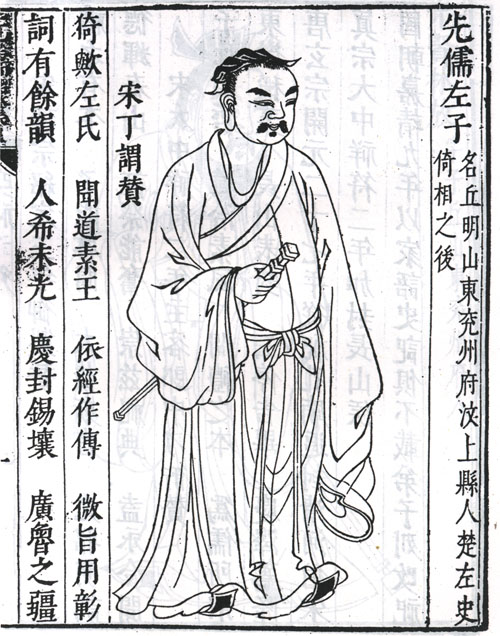 先儒左子
名丘明山東兗州府汶上縣人楚左史
倚相之後
宋丁謂贊
猗歟左氏 聞道素王 依經作傳 微旨用彰
詞有餘韻 人希末光 慶封錫壤 廣魯之疆